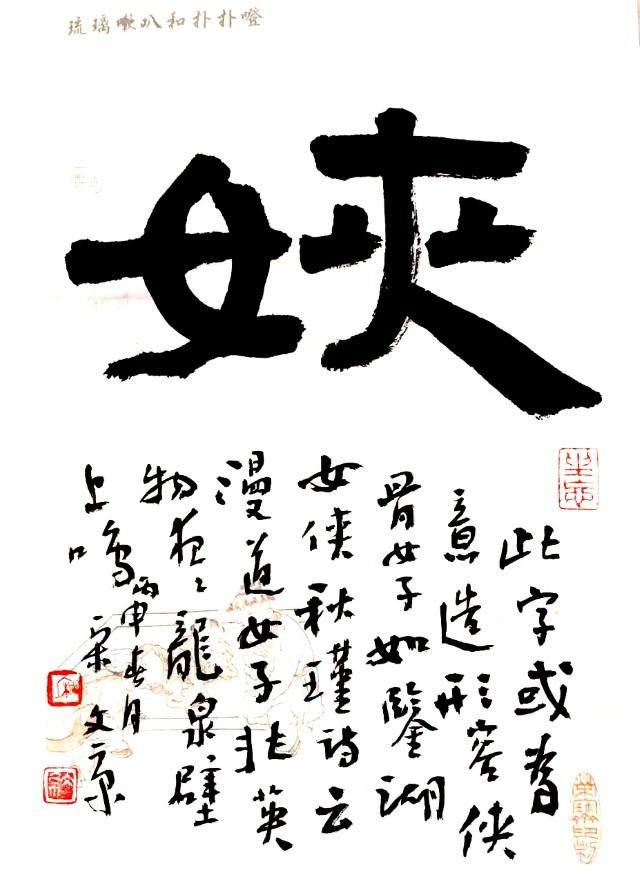 琉璃喇叭和扑扑噔
㛍
此字或有
意造形容侠
骨女子如鑒湖
女侠秋瑾诗云
漫道女子非英
物夜夜龍泉壁
上鸣
丙申春月
宋文京
坐忘